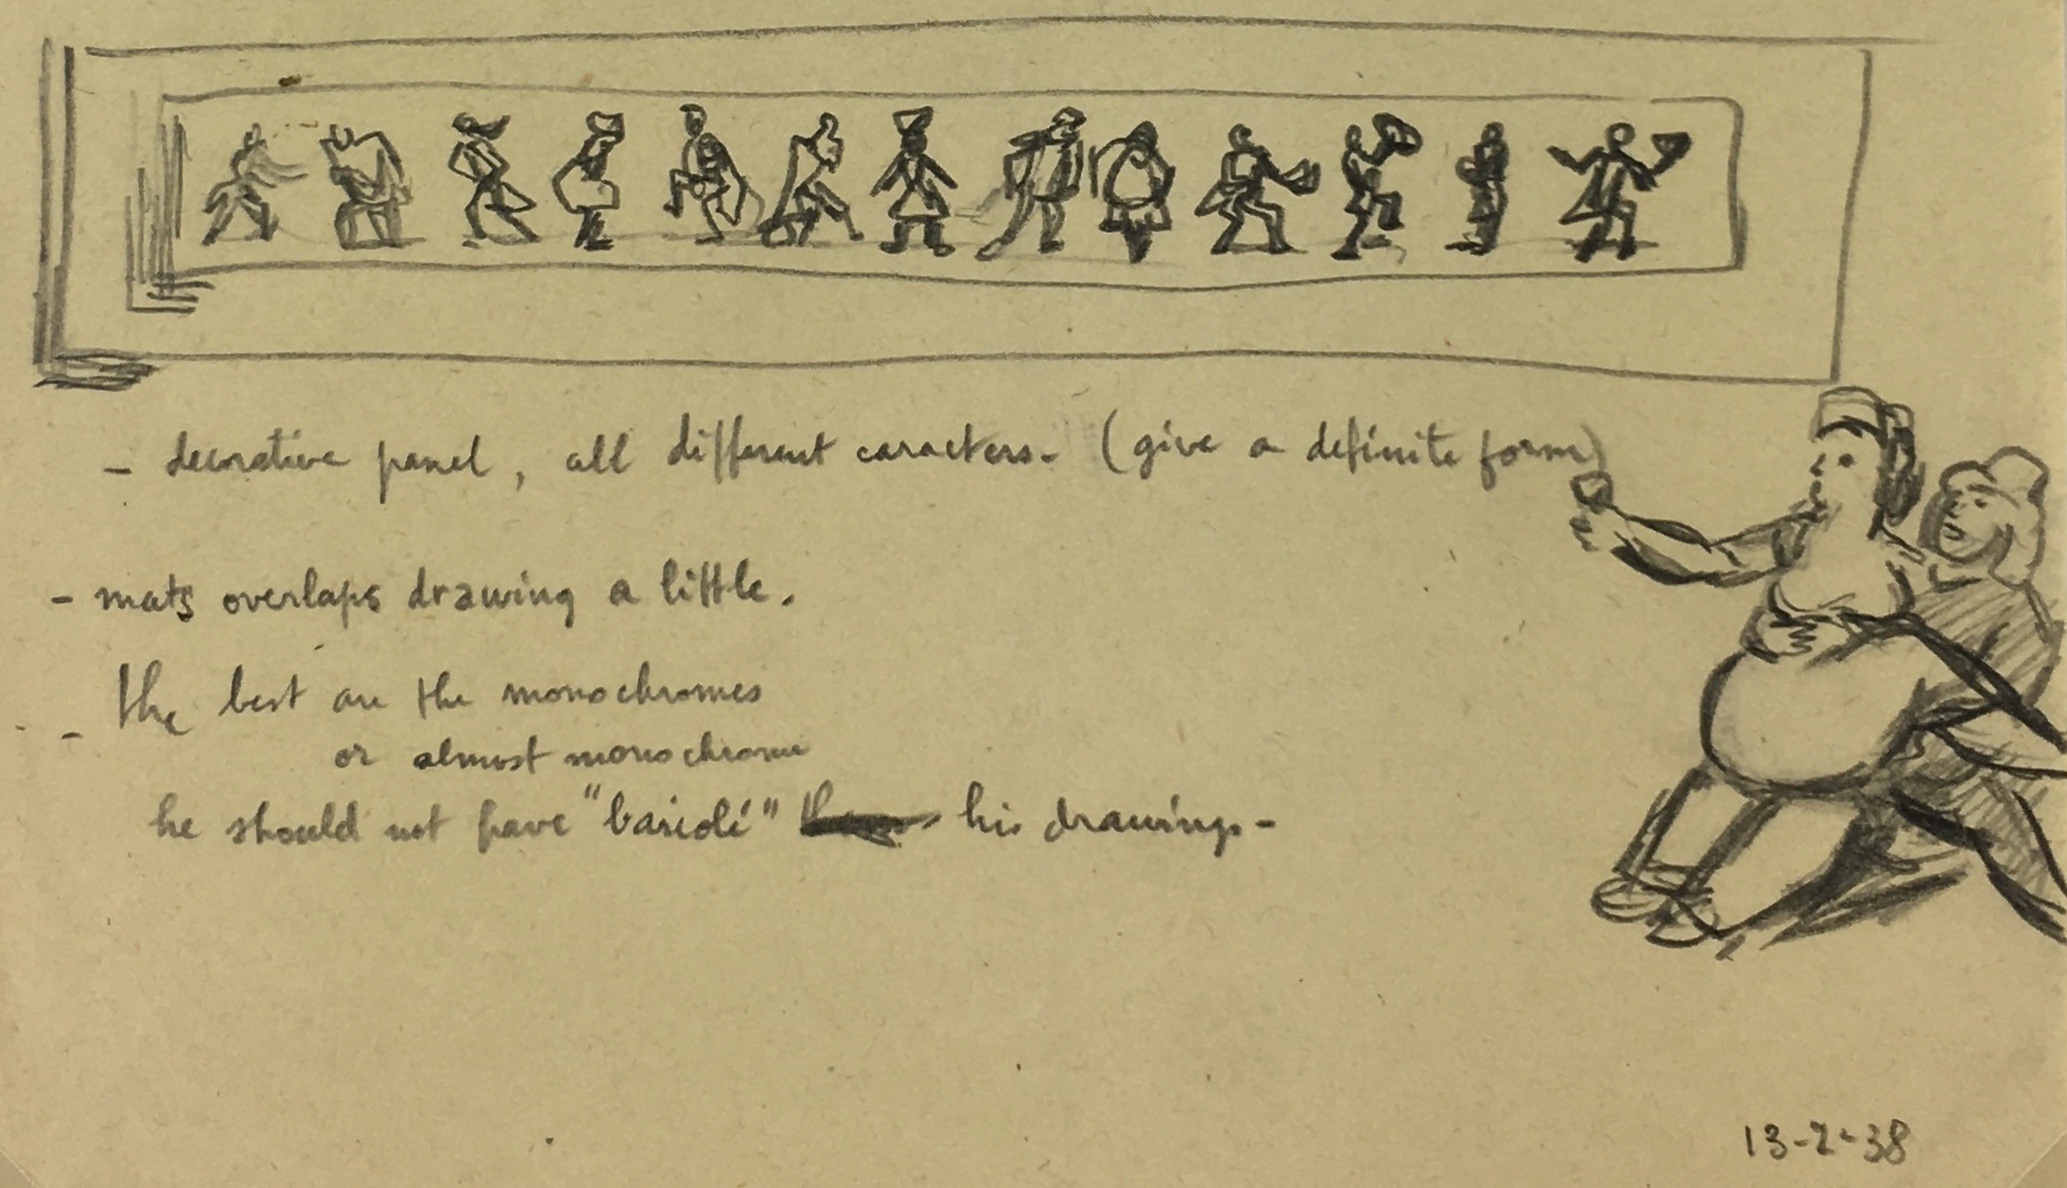 - decorative panel, all different caracters- (give a definite form)
- mats overlaps drawing a little.
- the best are the monochromes
or almost monochrome
he should not have "bariolé" his drawings-
13-2-38